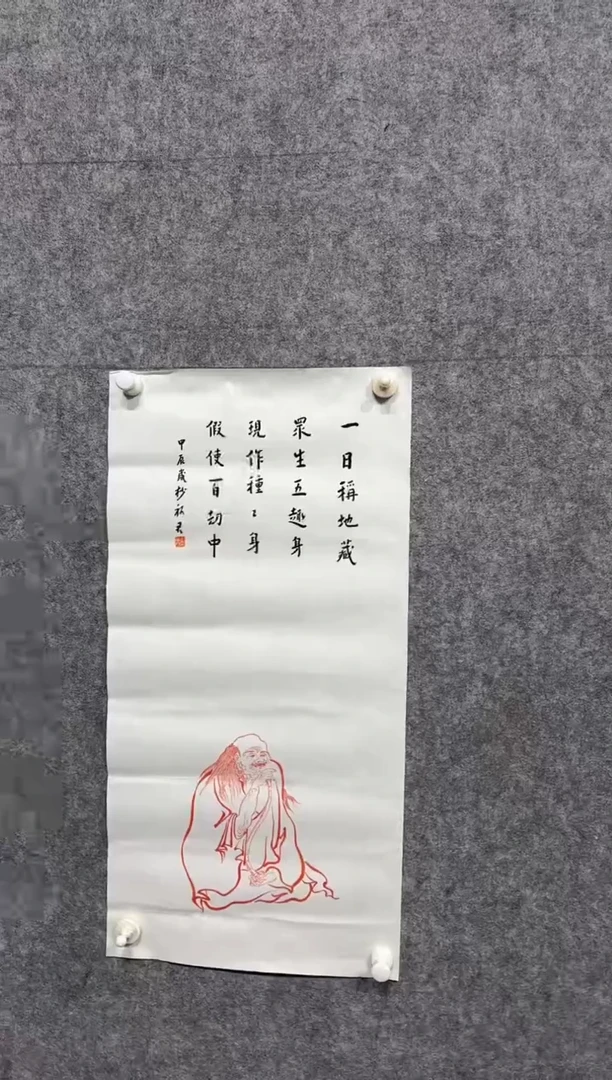 一日稱地藏
眾生五趣身
現作種〻身
假使百劫中
甲辰歲杪